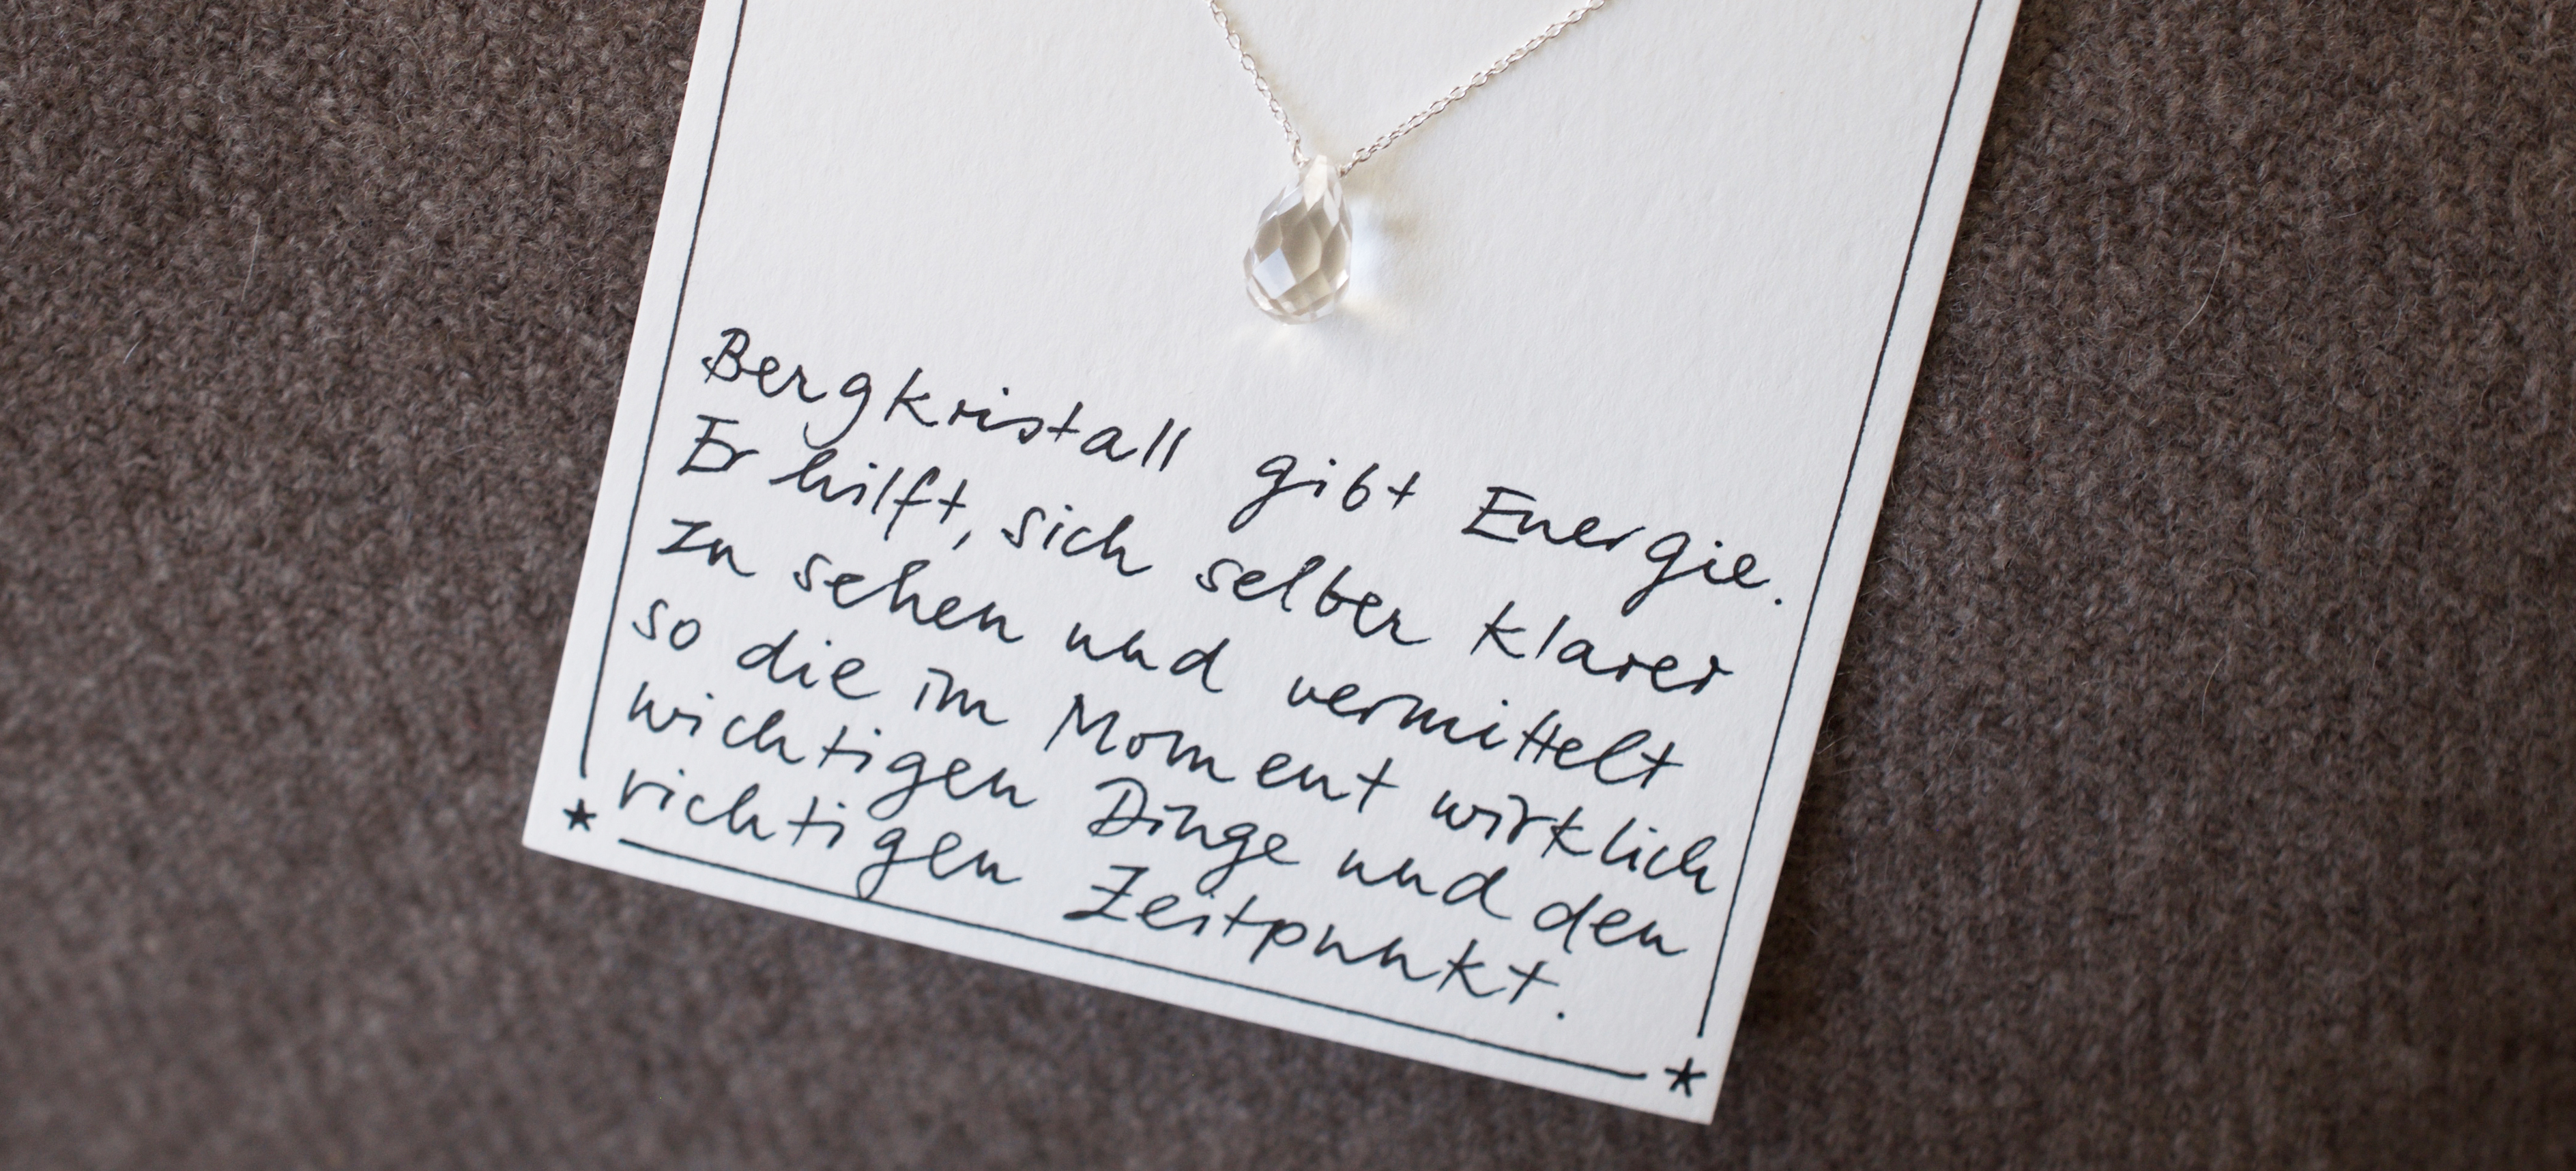 Bergkristall gibt Energie.
Er hilft, sich selber klarer
zu sehen und vermittelt
so die im Moment wirklich
wichtigen Dinge und den
richtigen Zeitpunkt.